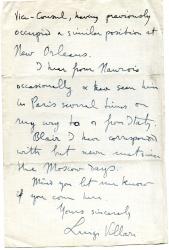 Vice-Consul, having previously
occupied a similar position at
New Orleans.
I hear from Naurois
occasionally & have seen him
in Paris several times on
my way to or from Italy.
Blair I have corresponded
with but never met since
the Moscow days.
Mind you let me know
if you come here.
Yours sincerely
Luigi Villari